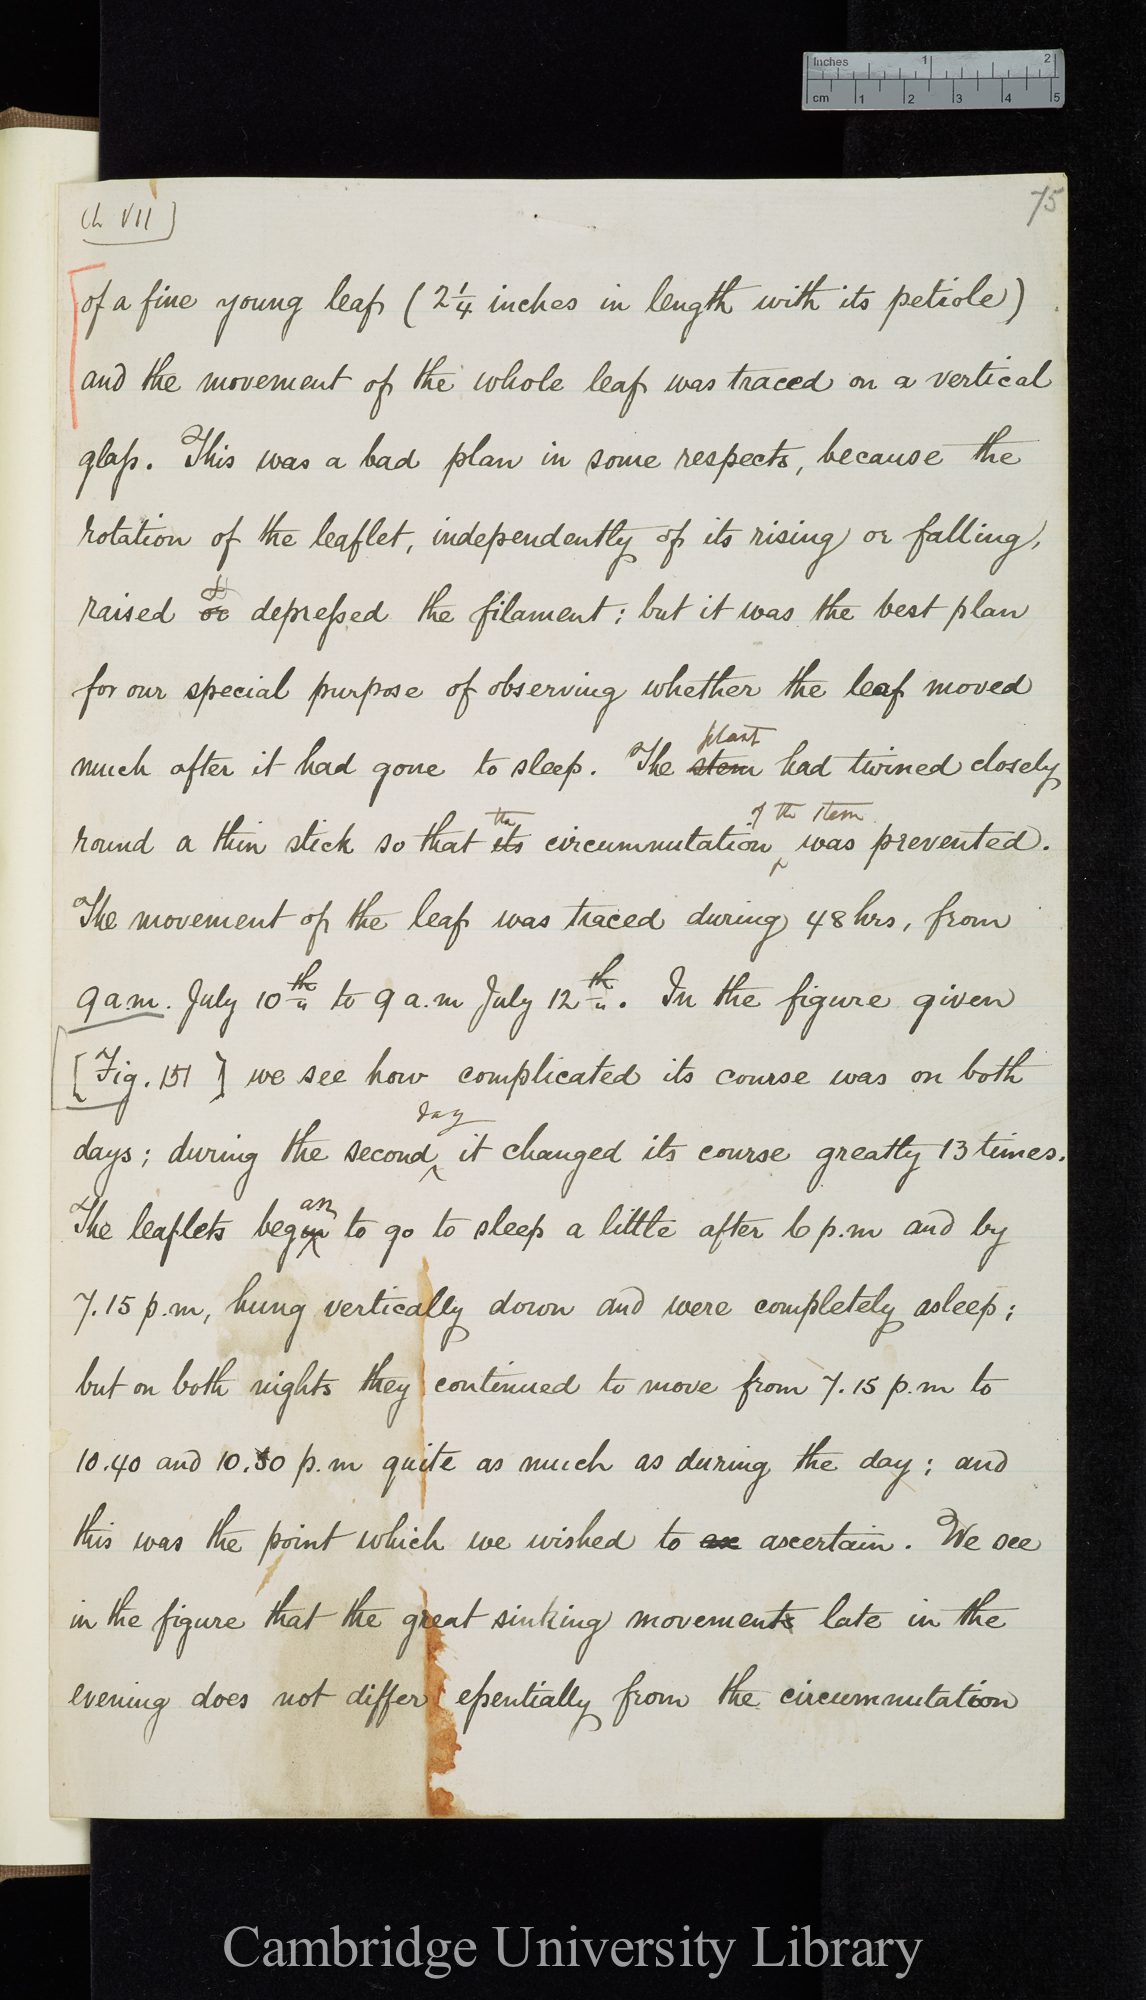 Inches 1 2
cm 1 2 3 4 5
75
Ch VII
of a fine young leaf (2 1/4 inches in length with its petiole)
and the movement of the whole leaf was traced on a vertical
glass. This was a bad plan in some respects, because the
rotation of the leaflet, independently of its rising or falling,
raised or depressed the filament; but it was the best plan
for our special purpose of observing whether the leaf moved
plant
much after it had gone to sleep. The stem had twined closely
the of the stem
round a thin stick so that its circumnutation was prevented.
The movement of the leaf was traced during 48 hrs, from
9 a.m. July 10th to 9 a.m July 12th. In the figure given
[Fig. 151] we see how complicated its course was on both
day
days; during the second it changed its course greatly 13 times.
an
The leaflets begin to go to sleep a little after 6 p.m and by
7.15 p.m, hung vertically down and were completely asleep;
but on both nights they continued to move from 7.15 p.m to
10.40 and 10.50 p.m quite as much as during the day; and
this was the point which we wished to ascertain. We see
in the figure that the great sinking movement late in the
evening does not differ essentially from the circumnutation
Cambridge University Library